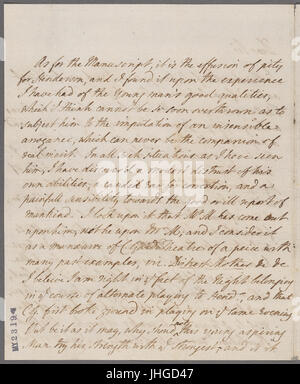 As for the Manuscript, it is the effusion of pity
for Henderson, and I found it upon the experience
I have had of the Young man's good qualities,
which I think cannot be so soon overthrown, as to
subject him to the imputation of an insensible
arrogance, which can never be the companion of
real merit. In all such situations as I have seen
him, I have discover'd a modest distrust of his
own abilities, a candid conversation, and a
painful sensibility towards the good will & report of
mankind. I look upon it that Mr. M has come out
upon him, not he upon Mr. M, and I consider it
as a manoeuvre of Theatre of a piece with
many past examples, viz. &c &c
I believe I am right in ye fact of the Night belonging
in ye course of alternate playing to Cov: and that
ye first broke ground in playing on ye same Evening
But be it as it may, why shou'd this young aspiring
Man try his strength with a and is it
MY2319
alamy
Image ID: JHGD47
www.alamy.com